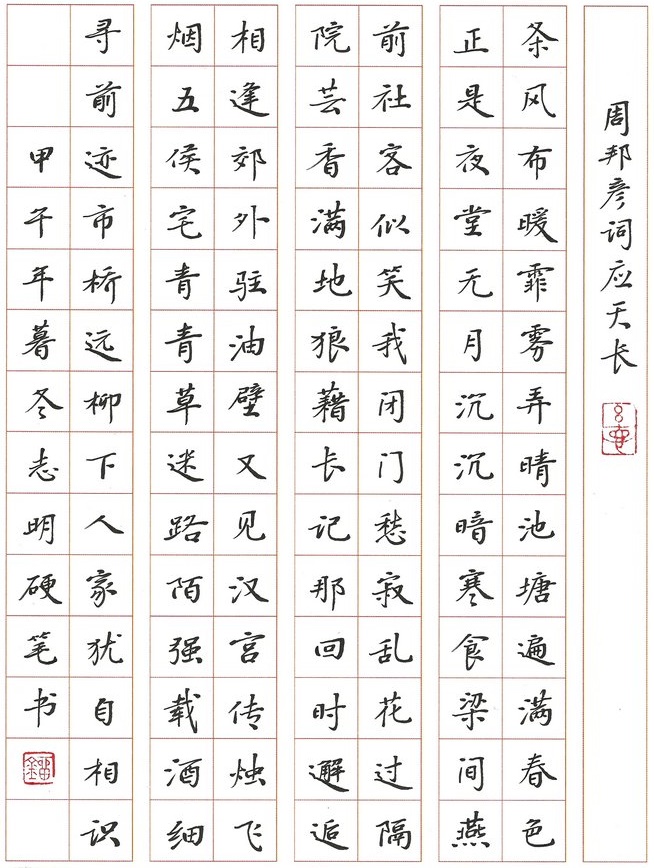 周邦彦词应天长
条风布暖霏雾弄晴池塘遍满春色
正是夜堂无月沉沉暗寒食梁间燕
前社客似笑我闭门愁寂乱花过隔
院芸香满地狼藉长记那回时邂逅
相逢郊外驻油壁又见汉宫传烛飞
烟五侯宅青青草迷路陌强载酒细
寻前迹市桥远柳下人家犹自相识
甲午年暮冬志明硬笔书